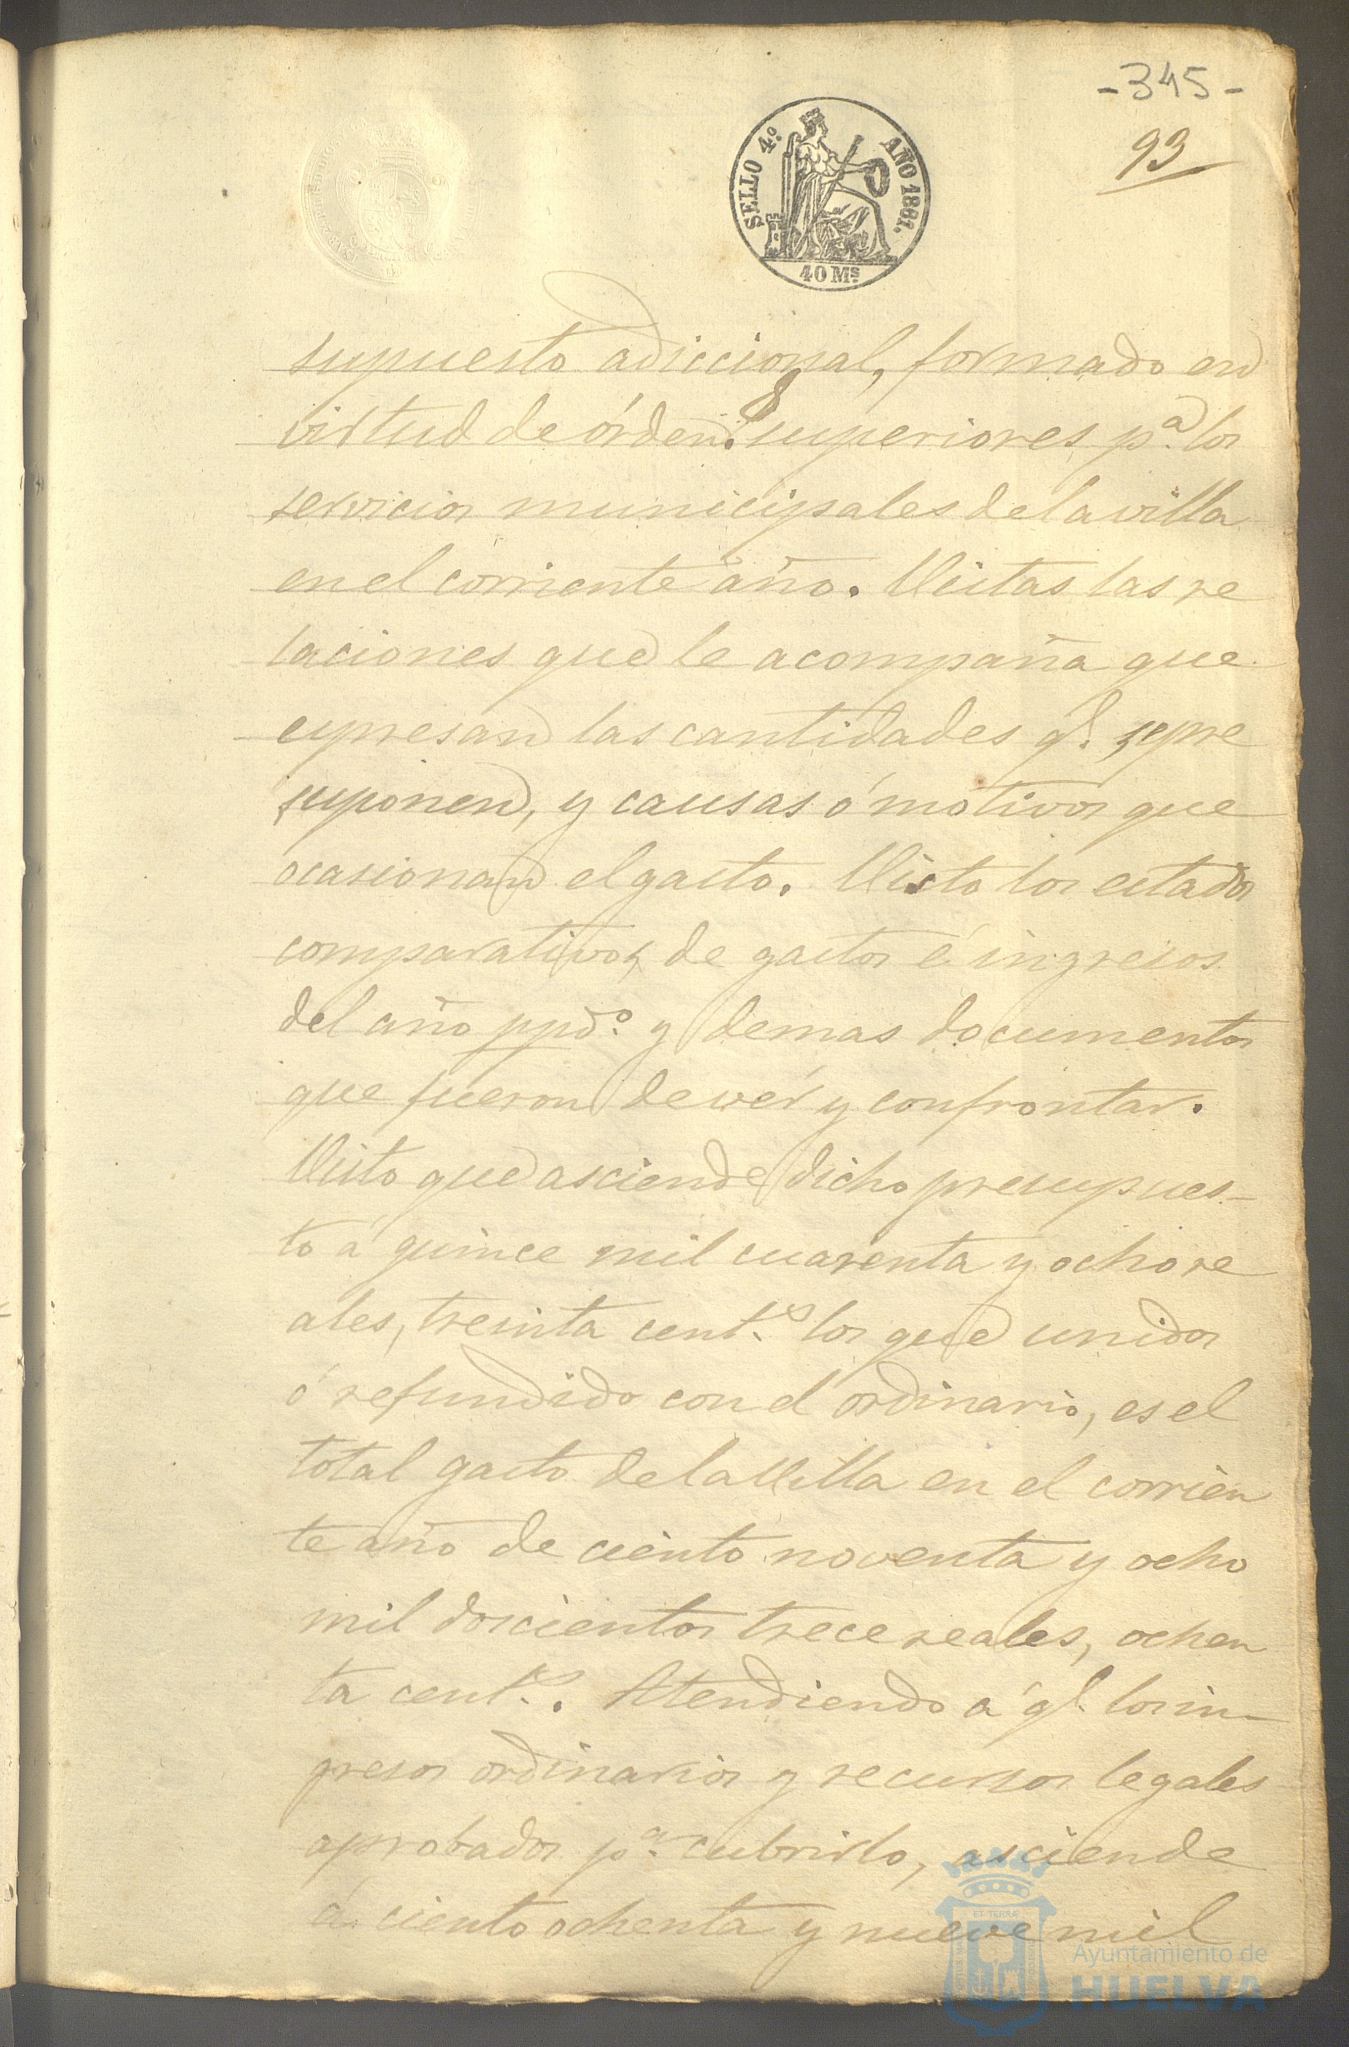 -345-
93
SELLO 4º AÑO 1861.
40 Ms
supuesto adiccional, formado en
virtud de órdens superiores pª los
servicios municipales de la villa
en el corriente año. Vistas las re
laciones que le acompaña que
espresan las cantidades q.e se pre
suponen, y causas ó motivos que
ocasionan el gasto. Visto los estados
comparativos, de gastos é ingresos
del año ppdo. y demas documentos
que fueron de vér y confrontar.
Visto que asciende dicho presupues-
to á quince mil cuarenta y ocho re
ales, treinta cent.s los que unidos
ó refundido con el ordinario, es el
total gasto de la Villa en el corrien
te año de ciento noventa y ocho
mil doscientos trece reales, ochen
ta cent.s. Atendiendo á q.e los in-
gresos ordinarios y recursos legales
aprobados p.a cubrirlo, asciende
á ciento ochenta y nueve mil
ET TERRÆ
Ayuntamiento de
HUELVA